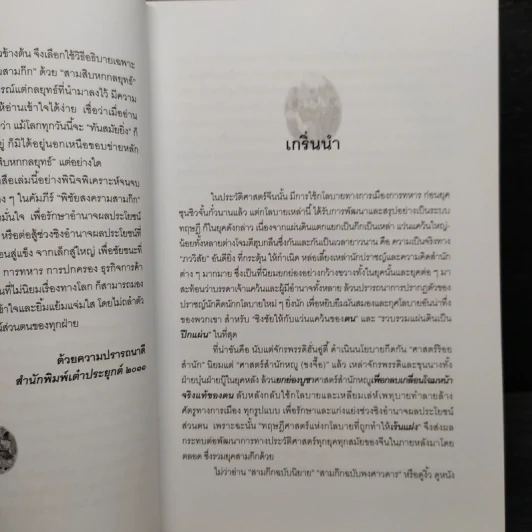 วข้างต้น จึงเลือกใช้วิธีอธิบายเฉพาะ
นสามก๊ก" ด้วย "สามสิบหกกลยุทธ์"
รณ์แต่กลยุทธ์ที่นำมาลงไว้ มีความ
ให้อ่านเข้าใจได้ง่าย เชื่อว่าเมื่ออ่าน
ว่า แม้โลกทุกวันนี้จะ "ทันสมัยยิ่ง" ก็
อยู่ ก็มิได้อยู่นอกเหนือขอบข่ายหลัก
สิบหกกลยุทธ์" แต่อย่างใด
สือเล่มนี้อย่างพินิจพิเคราะห์จนจบ
ง ๆ ในคัมภีร์ "พิชัยสงครามสามก๊ก"
มั่นใจ เพื่อรักษาอำนาจผลประโยชน์
หรือต่อสู้ช่วงชิงอำนาจผลประโยชน์ที่
อนสู่แข็ง จากเล็กสู่ใหญ่ เพื่อชัยชนะที่
การทหาร การปกครอง ธุรกิจการค้า
นที่ไม่นิยมเรื่องทางโลก ก็สามารถ
ข้าใจและยิ้มแย้มแจ่มใส โดยไม่ถลำตัว
น์ส่วนตนของทุกฝ่าย
ด้วยความปรารถนาดี
สำนักพิมพ์เต๋าประยุกต์ ๒๐๑๑
เกริ่นนำ
ในประวัติศาสตร์จีนนั้น มีการใช้กโลบายทางการเมืองการทหาร ก่อนยุค
ชุนชิวจั้นกั๋วนานแล้ว แต่กโลบายเหล่านี้ ได้รับการพัฒนาและสรุปอย่างเป็นระบบ
ทฤษฎี ก็ในยุคดังกล่าว เนื่องจากแผ่นดินแตกแยกเป็นก๊กเป็นเหล่า แว่นแคว้นใหญ่-
น้อยทั้งหลายต่างโจมตีฮุบกลืนซึ่งกันและกันเป็นเวลายาวนาน คือ ความเป็นจริงทาง
"ภาววิสัย" อันดียิ่ง ที่กระตุ้น ให้กำเนิด หล่อเลี้ยงเหล่านักปราชญ์และความคิดสำนัก
ต่าง ๆ มากมาย ซึ่งเป็นที่นิยมยกย่องอย่างกว้างขวางทั้งในยุคนั้นและยุคต่อ ๆ มา
สะท้อนว่าบรรดาเจ้าแคว้นและผู้มีอำนาจทั้งหลาย ล้วนปรารถนาการปรากฏตัวของ
ปราชญ์นักคิดนักกโลบายใหม่ ๆ ยิ่งนัก เพื่อหยิบยืมมันสมองและกุศโลบายอันน่าทึ่ง
ของพวกเขา สำหรับ "ชิงชัยให้กับแว่นแคว้นของตน" และ "รวบรวมแผ่นดินเป็น
ปึกแผ่น" ในที่สุด
ที่น่าขันคือ นับแต่จักรพรรดิฮั่นอู่ตี้ ดำเนินนโยบายกีดกัน "ศาสตร์ร้อย
สำนัก" นิยมแต่ "ศาสตร์สำนักหญู (ขงจื้อ)" แล้ว เหล่าจักรพรรดิและขุนนางทั้ง
ฝ่ายบุ๋นฝ่ายบู๊ในยุคหลัง ล้วนยกย่องบูชาศาสตร์สำนักหญูเพื่อกลบเกลื่อนโฉมหน้า
จริงแท้ของตน ลับหลังกลับใช้กโลบายและเหลี่ยมเล่ห์เพทุบายทำลายล้าง
ศัตรูทางการเมือง ทุกรูปแบบ เพื่อรักษาและแก่งแย่งช่วงชิงอำนาจผลประโยชน์
ส่วนตน เพราะฉะนั้น "ทฤษฎีศาสตร์แห่งกโลบายที่ถูกทำให้เร้นแฝง" จึงส่งผล
กระทบต่อพัฒนาการทางประวัติศาสตร์ทุกยุคทุกสมัยของจีนในภายหลังมาโดย
ตลอด ซึ่งรวมยุคสามก๊กด้วย
ไม่ว่าอ่าน "สามก๊กฉบับนิยาย" "สามก๊กฉบับพงศาวดาร" หรือดูงิ้ว ดูหนัง